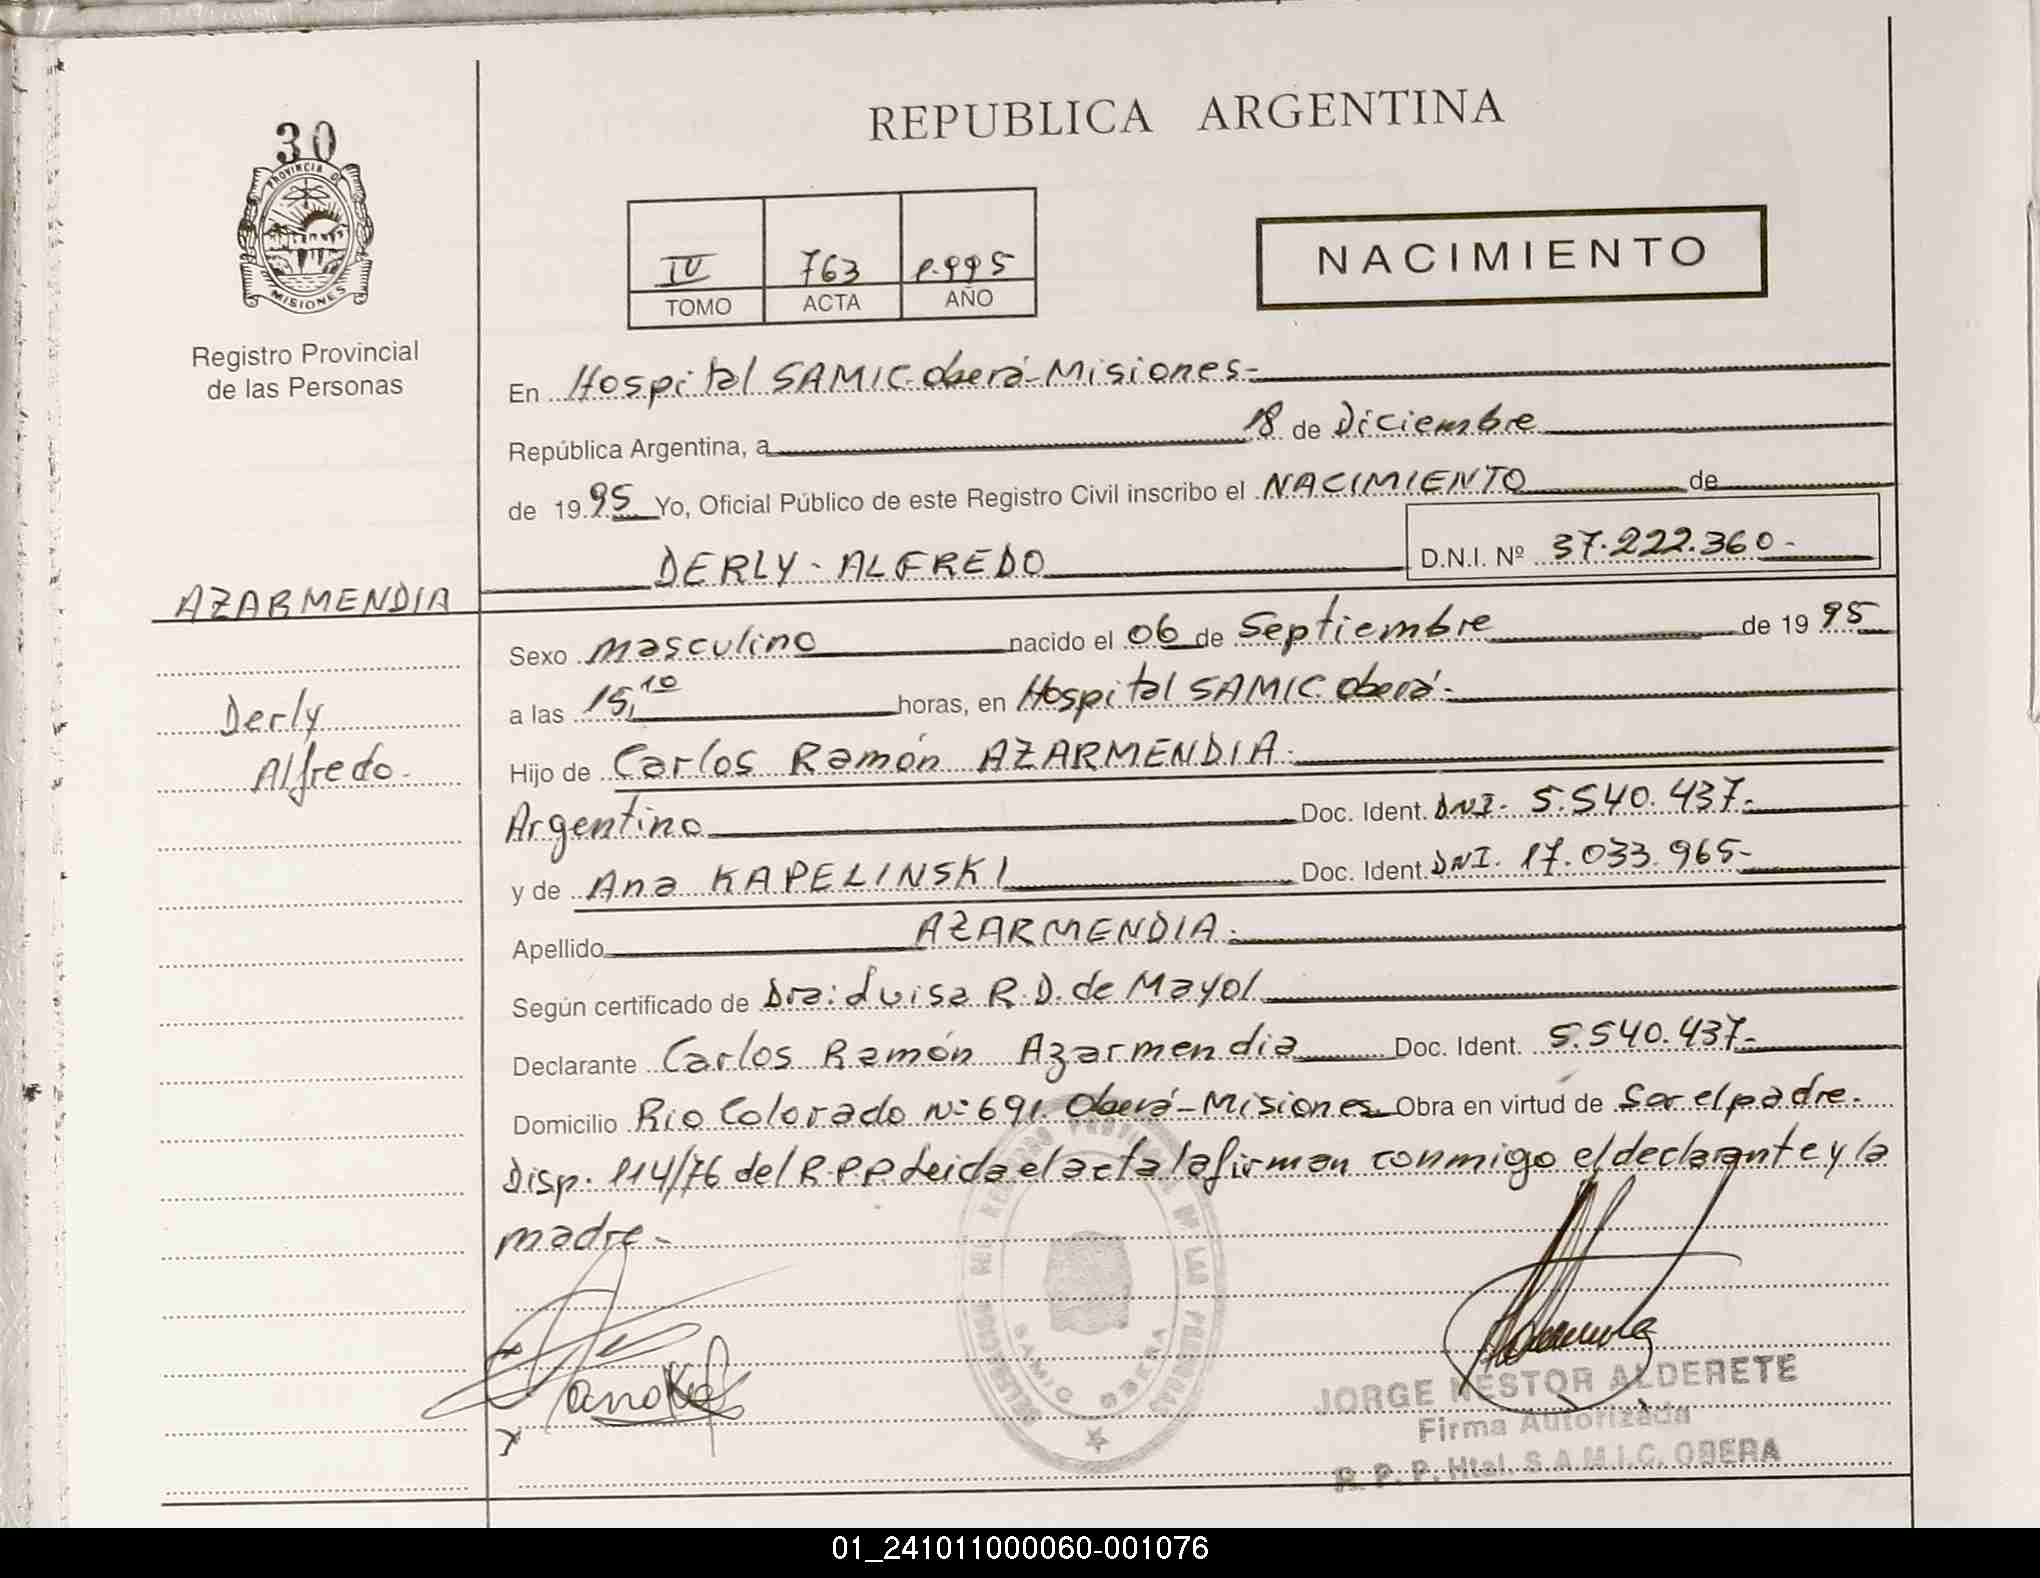 30
PROVINCIA DE
MISIONES
Registro Provincial
de las Personas
REPUBLICA ARGENTINA
IV 763 1.995
TOMO ACTA AÑO
NACIMIENTO
En Hospital SAMIC-Oberá-Misiones-
República Argentina, a 18 de Diciembre
de 1995. Yo, Oficial Público de este Registro Civil inscribo el NACIMIENTO de
DERLY - ALFREDO D.N.I. Nº 37.222.360-
AZARMENDIA
Derly
Alfredo.
Sexo masculino nacido el 06 de Septiembre de 1995
a las 15,10 horas, en Hospital SAMIC. Oberá-
Hijo de Carlos Ramón AZARMENDIA.
Argentino Doc. Ident. DNI- 5.540.437-
y de Ana KAPELINSKI Doc. Ident. DNI. 17.033.965-
Apellido AZARMENDIA.
Según certificado de Dra: Luisa R.D. de Mayol
Declarante Carlos Ramón Azarmendia Doc. Ident. 5.540.437-
Domicilio Rio Colorado Nº 691. Oberá-Misiones Obra en virtud de Ser el padre.
Disp. 114/76 del R.P.P Leida el acta la firman conmigo el declarante y la
madre-
DELEGACION DEL REGISTRO PROVINCIAL DE LAS PERSONAS
SAMIC OBERA
JORGE NESTOR ALDERETE
Firma Autorizada
R. P. P. Htal. S.A.M.I.C. OBERA
01_241011000060-001076